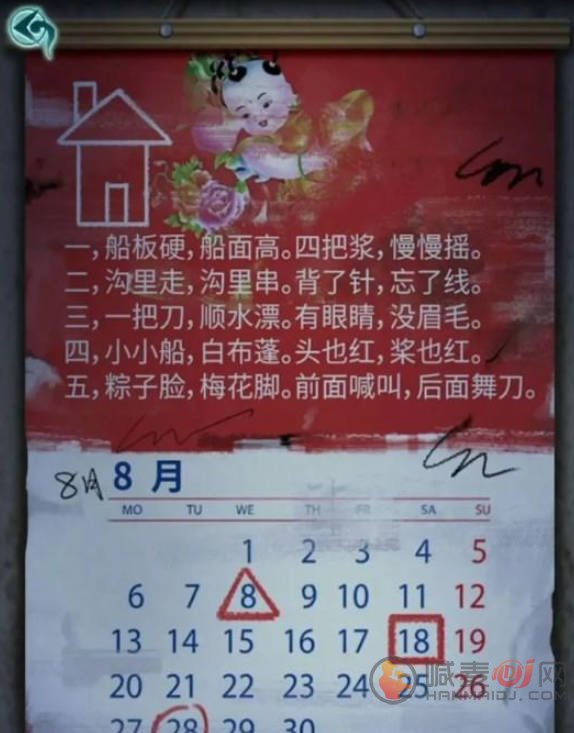 一，船板硬，船面高。四把浆，慢慢摇。
二，沟里走，沟里串。背了针，忘了线。
三，一把刀，顺水漂。有眼睛，没眉毛。
四，小小船，白布蓬。头也红，桨也红。
五，粽子脸，梅花脚。前面喊叫，后面舞刀。
8月 8 月
MO TU WE TH FR SA SU
1 2 3 4 5
6 7 8 9 10 11 12
13 14 15 16 17 18 19
20 21 22 23 24 25 26
27 28 29 30
喊麦DJ网
HANMAIDJ.COM